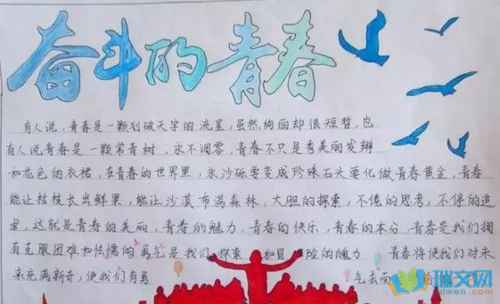 奋斗的青春
有人说,青春是一颗划破天宇的流星,虽然绚丽却很短暂,也
有人说青春是一颗常青树,永不调零,青春不只是秀美丽发辫
和花色的衣裙,在青春的世界里,水沙砾要变成珍珠石大要化做青春黄金,青春
能让枯枝长出鲜果,能让沙漠布满森林,大胆的探索,不倦的思考,不停的追
求,这就是青春的美丽,青春的魅力,青春的快乐,青春的本分,青春是我们拥
有克服困难和怯懦的勇气是我们探索 和冒险的魄力 青春将使我们对未
来充满新奇,使我们有勇 气去面
瑞文网
ruiwen.com